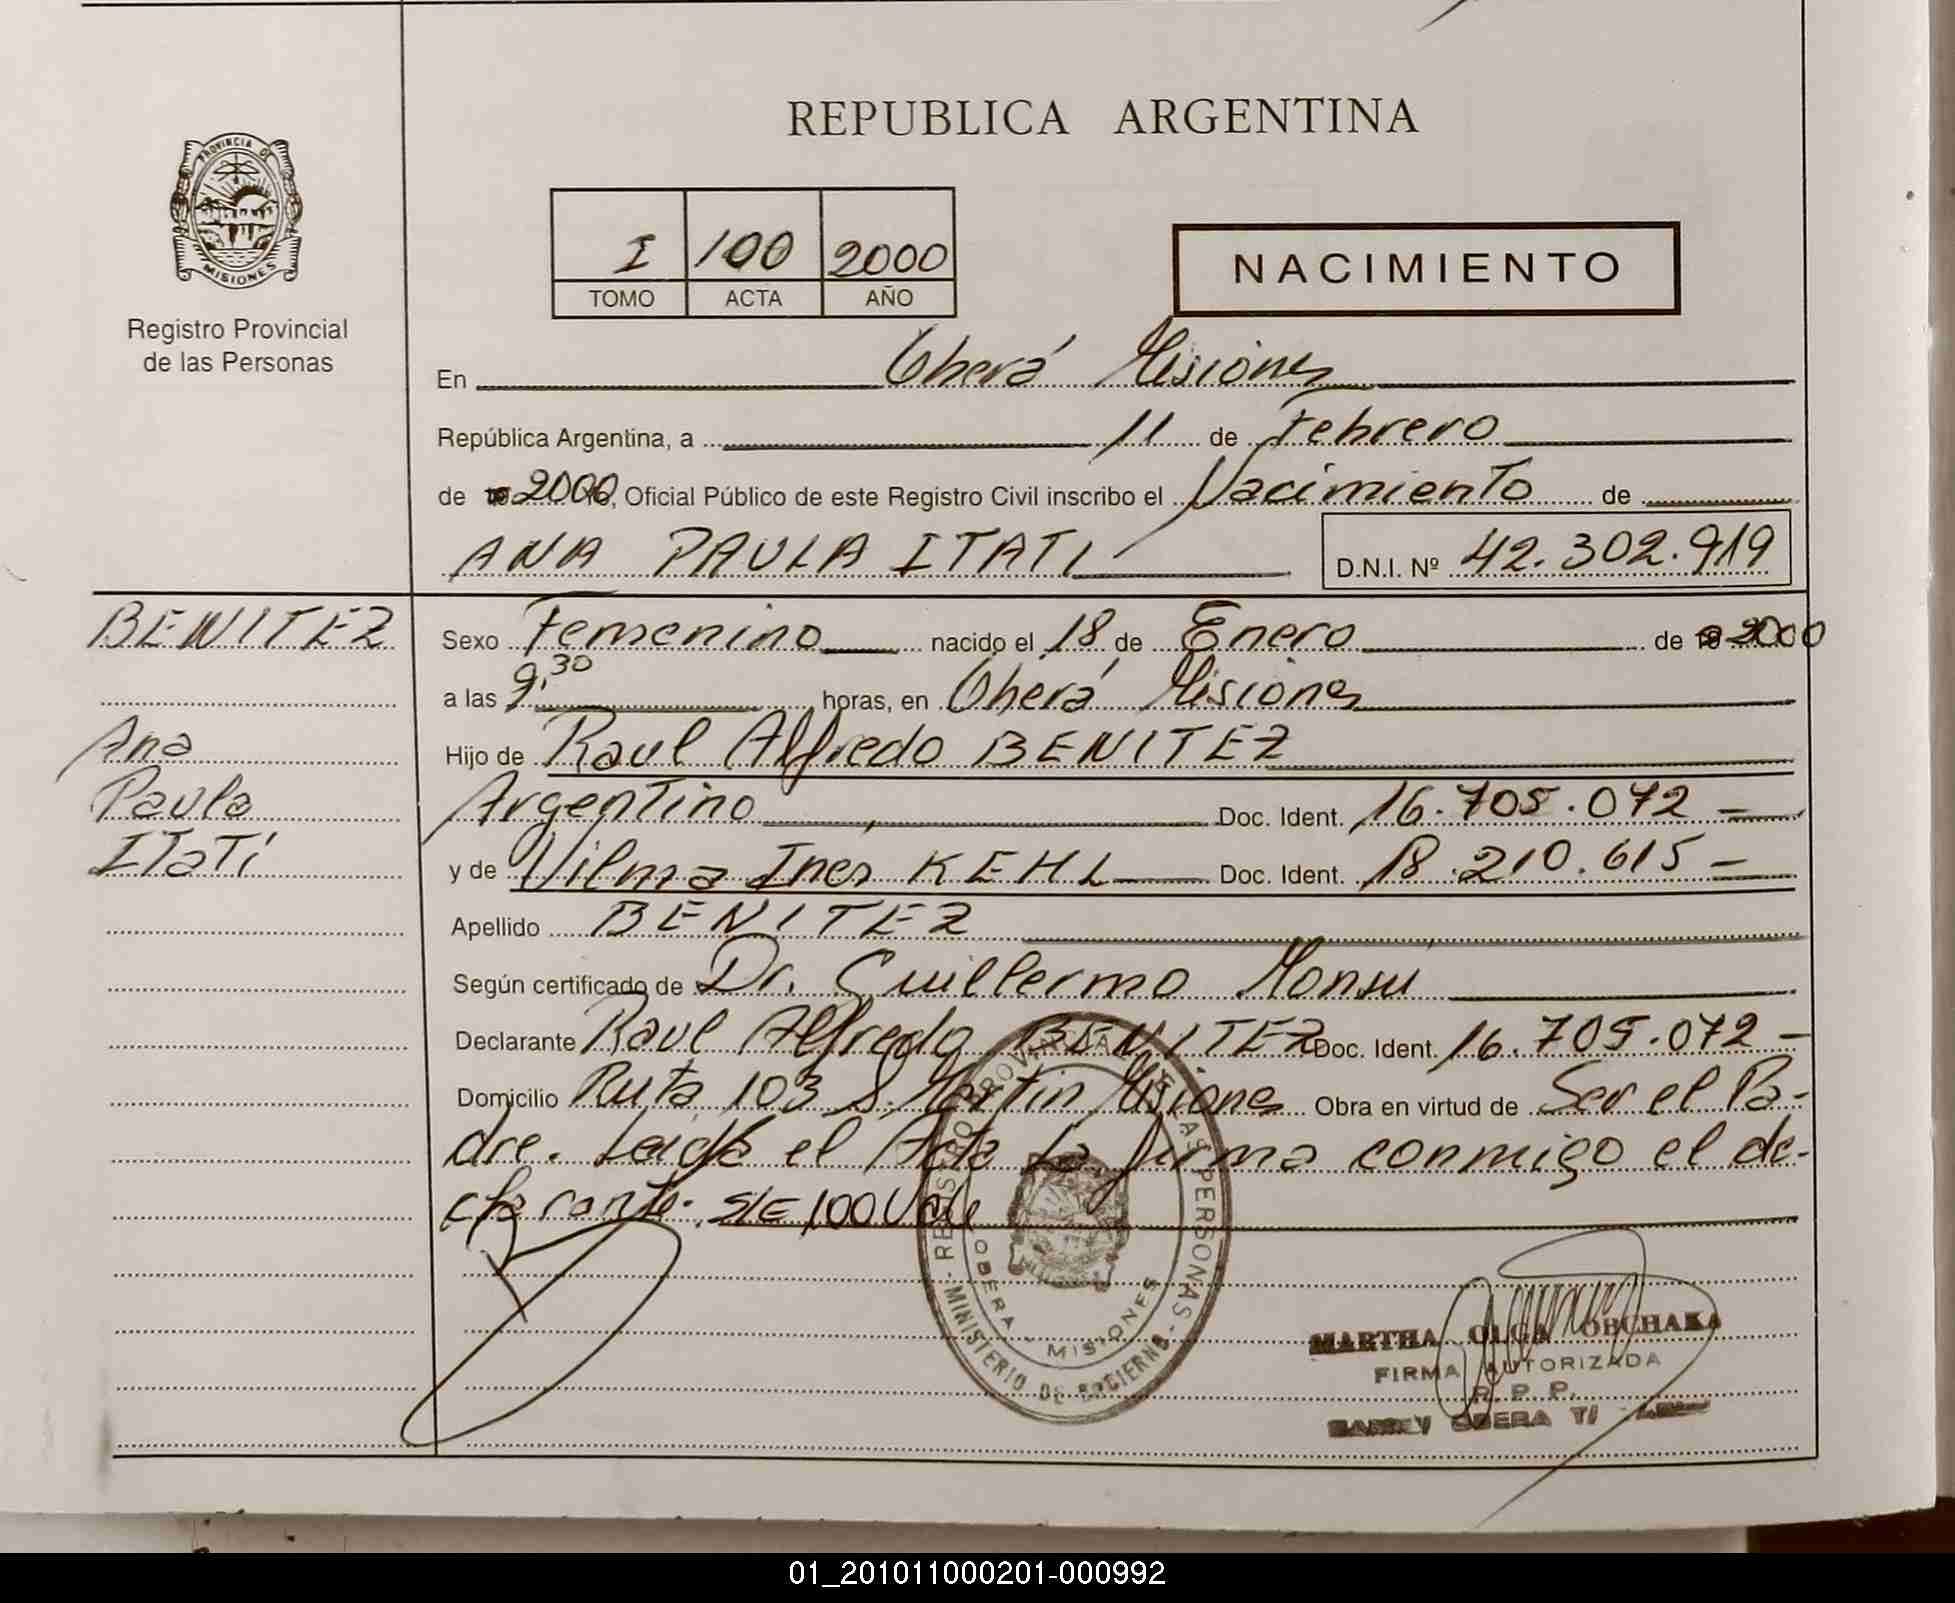 REPUBLICA ARGENTINA
PROVINCIA DE
MISIONES
Registro Provincial
de las Personas
I 100 2000
TOMO ACTA AÑO
NACIMIENTO
En Oberá Misiones
República Argentina, a 11 de Febrero
de 2000, Oficial Público de este Registro Civil inscribo el Nacimiento de
ANA PAULA ITATI D.N.I. Nº 42.302.919
BENITEZ
Ana
Paula
Itatí
Sexo Femenino nacido el 18 de Enero de 2000
a las 9,30 horas, en Oberá Misiones
Hijo de Raul Alfredo BENITEZ
Argentino Doc. Ident. 16.705.072
y de Vilma Inés KEHL Doc. Ident. 18.210.615
Apellido BENITEZ
Según certificado de Dr. Guillermo
Declarante Raul Alfredo BENITEZ Doc. Ident. 16.705.072
Domicilio Ruta 103 S. Martin Misiones Obra en virtud de Ser el Pa-
dre. Leida el Acta la firma conmigo el de-
clarante. S/E 100 Vale
REGISTRO PROVINCIAL DE LAS PERSONAS
OBERA - MISIONES
MINISTERIO DE GOBIERNO
MARTHA OLGA OBCHAKA
FIRMA AUTORIZADA
R. P. P.
OBERA
01_201011000201-000992